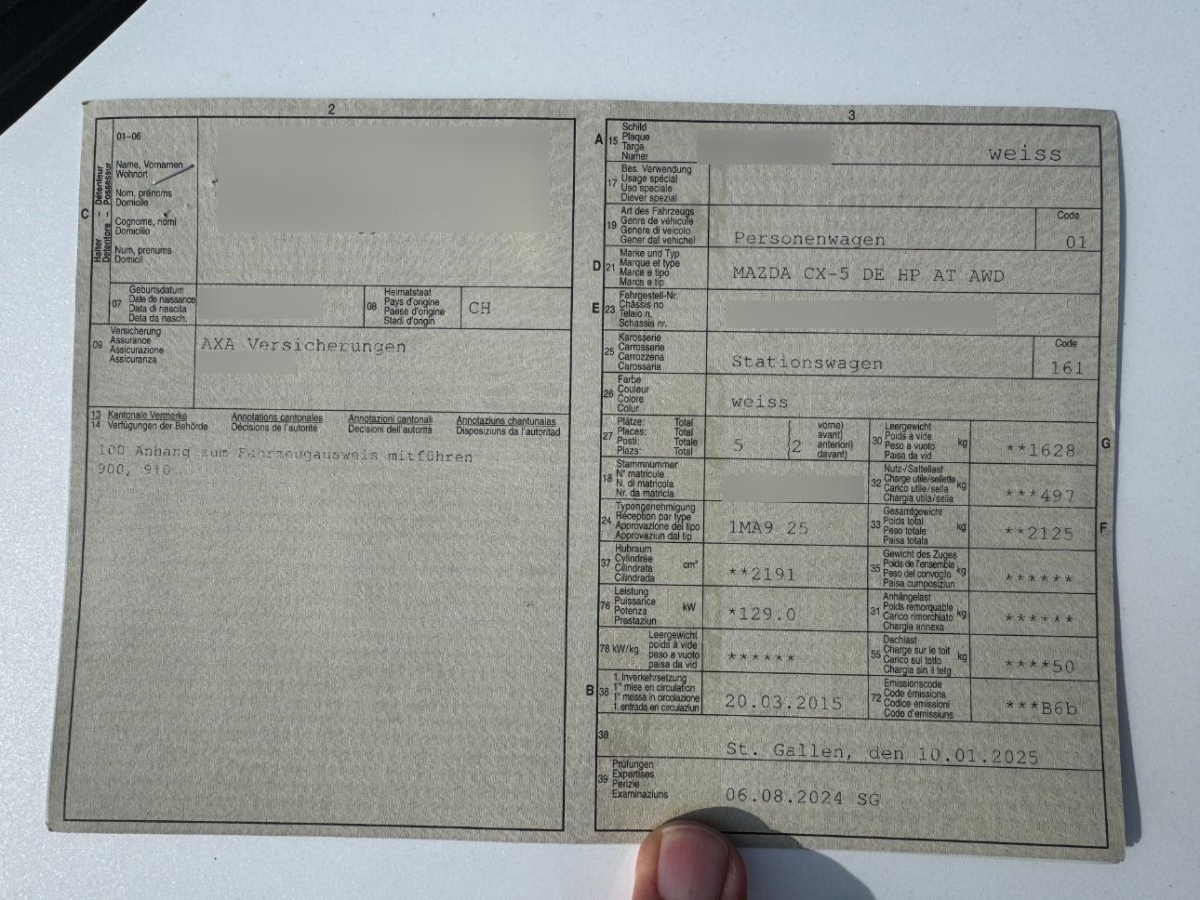 2
01-06
Name, Vornamen
Wohnort
Nom, prénoms
Domicile
Cognome, nomi
Domicilio
Num, prenums
Domicil
C
Halter – Détenteur
Detentore – Possessur
07
Geburtsdatum
Date de naissance
Data di nascita
Data da nasch.
08
Heimatstaat
Pays d'origine
Paese d'origine
Stadi d'origin
CH
09
Versicherung
Assurance
Assicurazione
Assicuranza
AXA Versicherungen
13 Kantonale Vermerke Annotations cantonales Annotazioni cantonali Annotaziuns chantunalas
14 Verfügungen der Behörde Décisions de l'autorité Decisioni dell'autorità Disposiziuns da l'autoritad
100 Anhang zum Fahrzeugausweis mitführen
900, 910
3
A 15
Schild
Plaque
Targa
Numer
weiss
17
Bes. Verwendung
Usage spécial
Uso speciale
Diever spezial
19
Art des Fahrzeugs
Genre de véhicule
Genere di veicolo
Gener dal vehichel
Personenwagen
Code
01
D 21
Marke und Typ
Marque et type
Marca e tipo
Marca e tip
MAZDA CX-5 DE HP AT AWD
E 23
Fahrgestell-Nr.
Châssis no
Telaio n.
Schassis nr.
25
Karosserie
Carrosserie
Carrozzeria
Carossaria
Stationswagen
Code
161
26
Farbe
Couleur
Colore
Colur
weiss
27
Plätze: Total
Places: Total
Posti: Totale
Plazs: Total
5
2
vorne)
avant)
anteriori)
davant)
30
Leergewicht
Poids à vide
Peso a vuoto
Paisa da vid
kg
**1628
G
18
Stammnummer
N° matricule
N. di matricola
Nr. da matricla
32
Nutz-/Sattellast
Charge utile/sellette
Carico utile/sella
Chargia utila/sella
kg
***497
24
Typengenehmigung
Réception par type
Approvazione del tipo
Approvaziun dal tip
1MA9 25
33
Gesamtgewicht
Poids total
Peso totale
Paisa totala
kg
**2125
F
37
Hubraum
Cylindrée
Cilindrata
Cilindrada
cm³
**2191
35
Gewicht des Zuges
Poids de l'ensemble
Peso del convoglio
Paisa cumposiziun
kg
******
76
Leistung
Puissance
Potenza
Prestaziun
kW
*129.0
31
Anhängelast
Poids remorquable
Carico rimorchiato
Chargia annexa
kg
******
78 kW/kg
Leergewicht
poids à vide
peso a vuoto
paisa da vid
******
55
Dachlast
Charge sur le toit
Carico sul tetto
Chargia sin il tetg
kg
****50
B 36
1. Inverkehrsetzung
1re mise en circulation
1a messa in circolazione
1. entrada en circulaziun
20.03.2015
72
Emissionscode
Code émissions
Codice emissioni
Code d'emissiuns
***B6b
38
St. Gallen, den 10.01.2025
39
Prüfungen
Expertises
Perizie
Examinaziuns
06.08.2024 SG